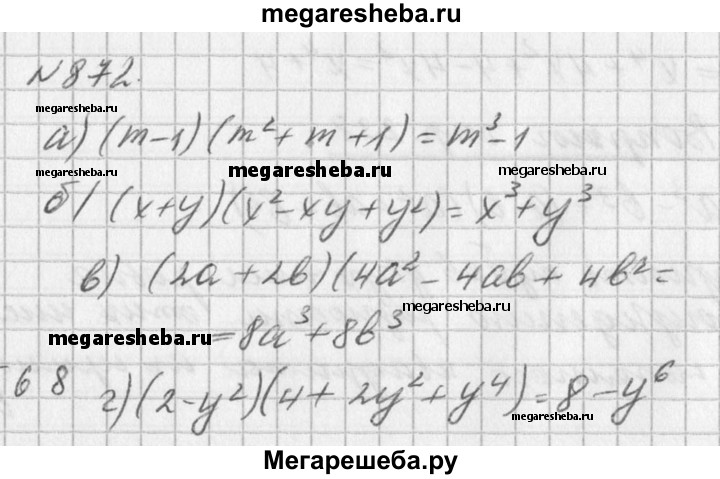 megaresheba.ru
№872.
megaresheba.ru
а) (m-1)(m²+m+1)=m³-1
megaresheba.ru megaresheba.ru megaresheba.ru
б) (x+y)(x²-xy+y²)=x³+y³
в) (2a+2b)(4a²-4ab+4b²=
megaresheba.ru
megaresheba.ru =8a³+8b³
68 г) (2-y²)(4+2y²+y⁴)=8-y⁶
megaresheba.ru megaresheba.ru
Мегарешеба.ру